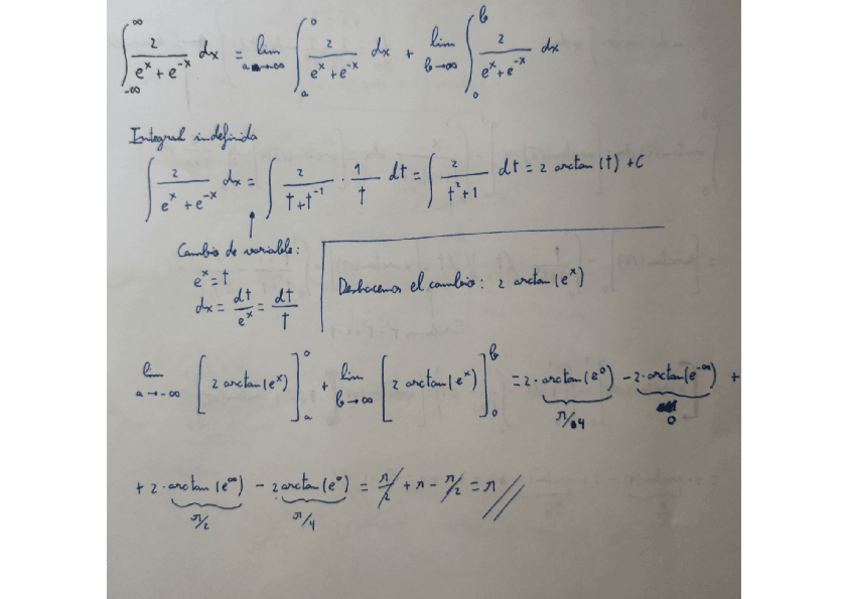 ∫_{-∞}^{∞} 2/(e^x + e^{-x}) dx = lim_{a→-∞} ∫_a^0 2/(e^x + e^{-x}) dx + lim_{b→∞} ∫_0^b 2/(e^x + e^{-x}) dx
Integral indefinida
∫ 2/(e^x + e^{-x}) dx = ∫ 2/(t + t^{-1}) · 1/t dt = ∫ 2/(t^2 + 1) dt = 2 arctan(t) + C
Cambio de variable:
e^x = t
dx = dt/e^x = dt/t
Deshacemos el cambio: 2 arctan(e^x)
lim_{a→-∞} [2 arctan(e^x)]_a^0 + lim_{b→∞} [2 arctan(e^x)]_0^b = 2 · arctan(e^0) - 2 · arctan(e^{-∞}) +
π/4 0
+ 2 · arctan(e^∞) - 2 arctan(e^0) = π/2 + π - π/2 = π //
π/2 π/4